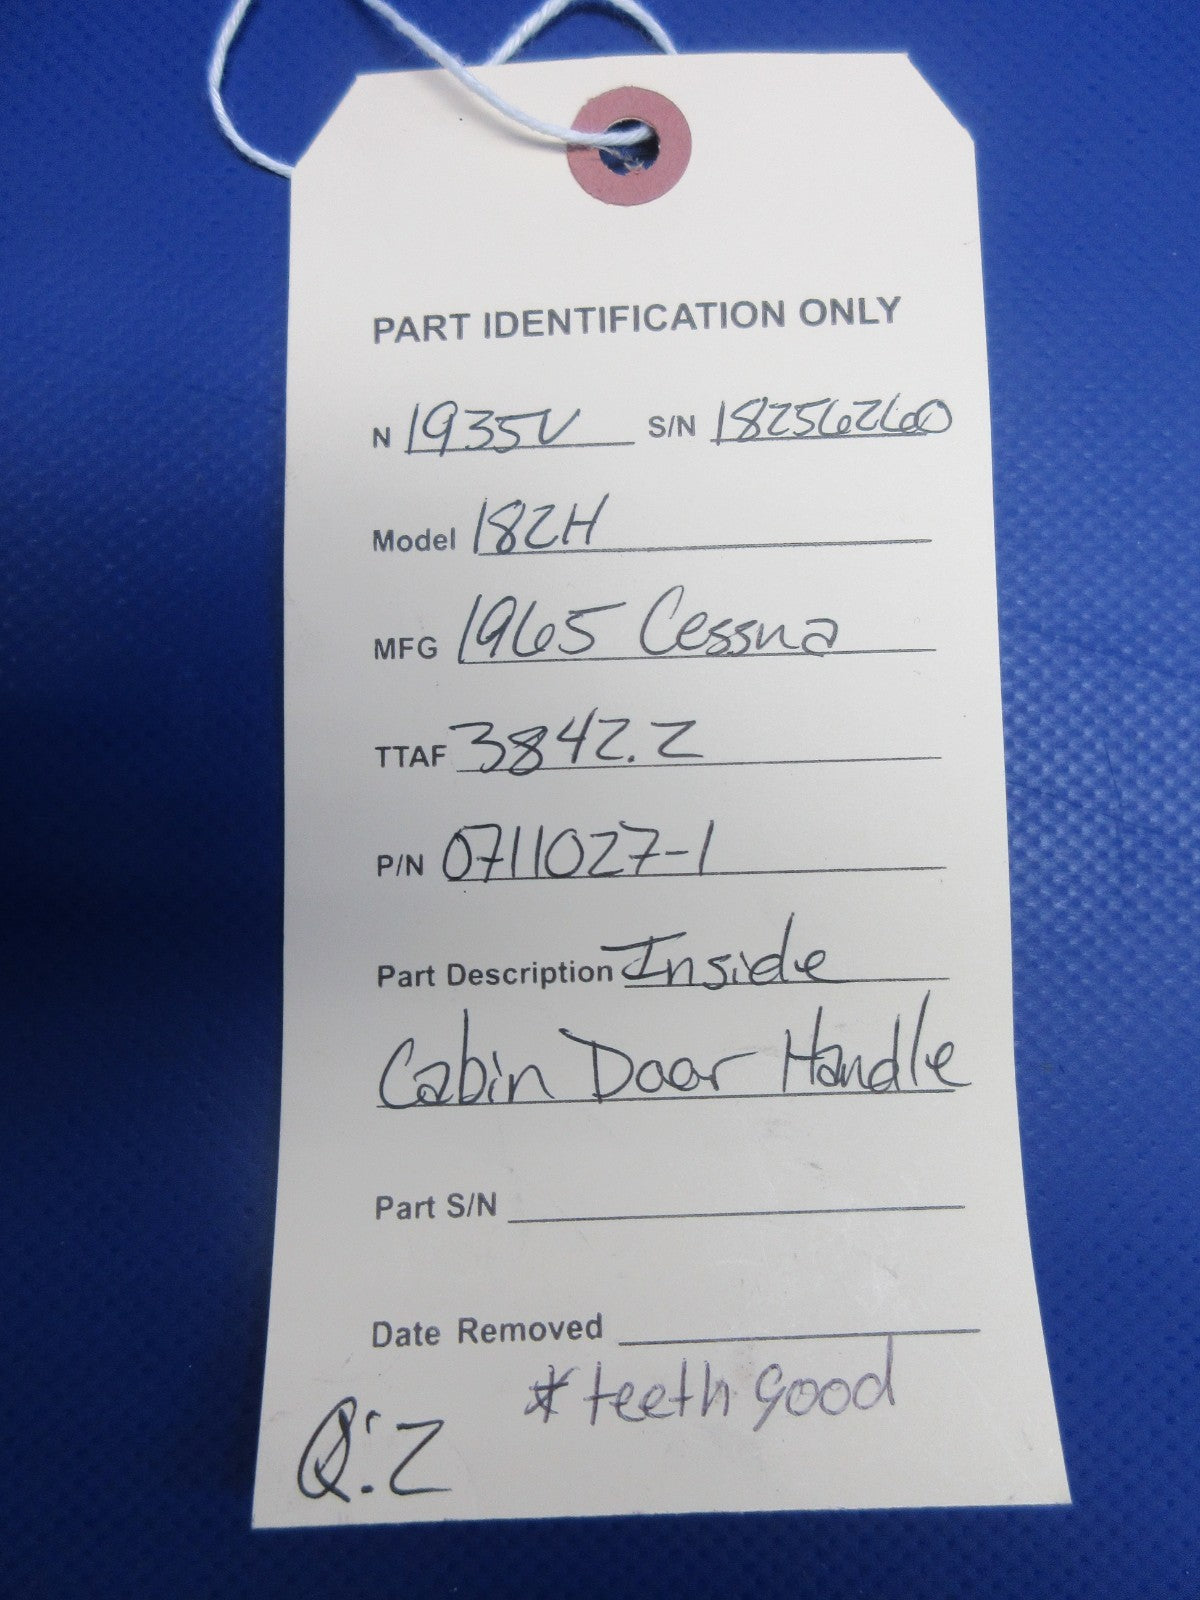 PART IDENTIFICATION ONLY
N 1935V S/N 18256260
Model 182H
MFG 1965 Cessna
TTAF 3842.2
P/N 0711027-1
Part Description Inside
Cabin Door Handle
Part S/N
Date Removed
* teeth good
Q:2